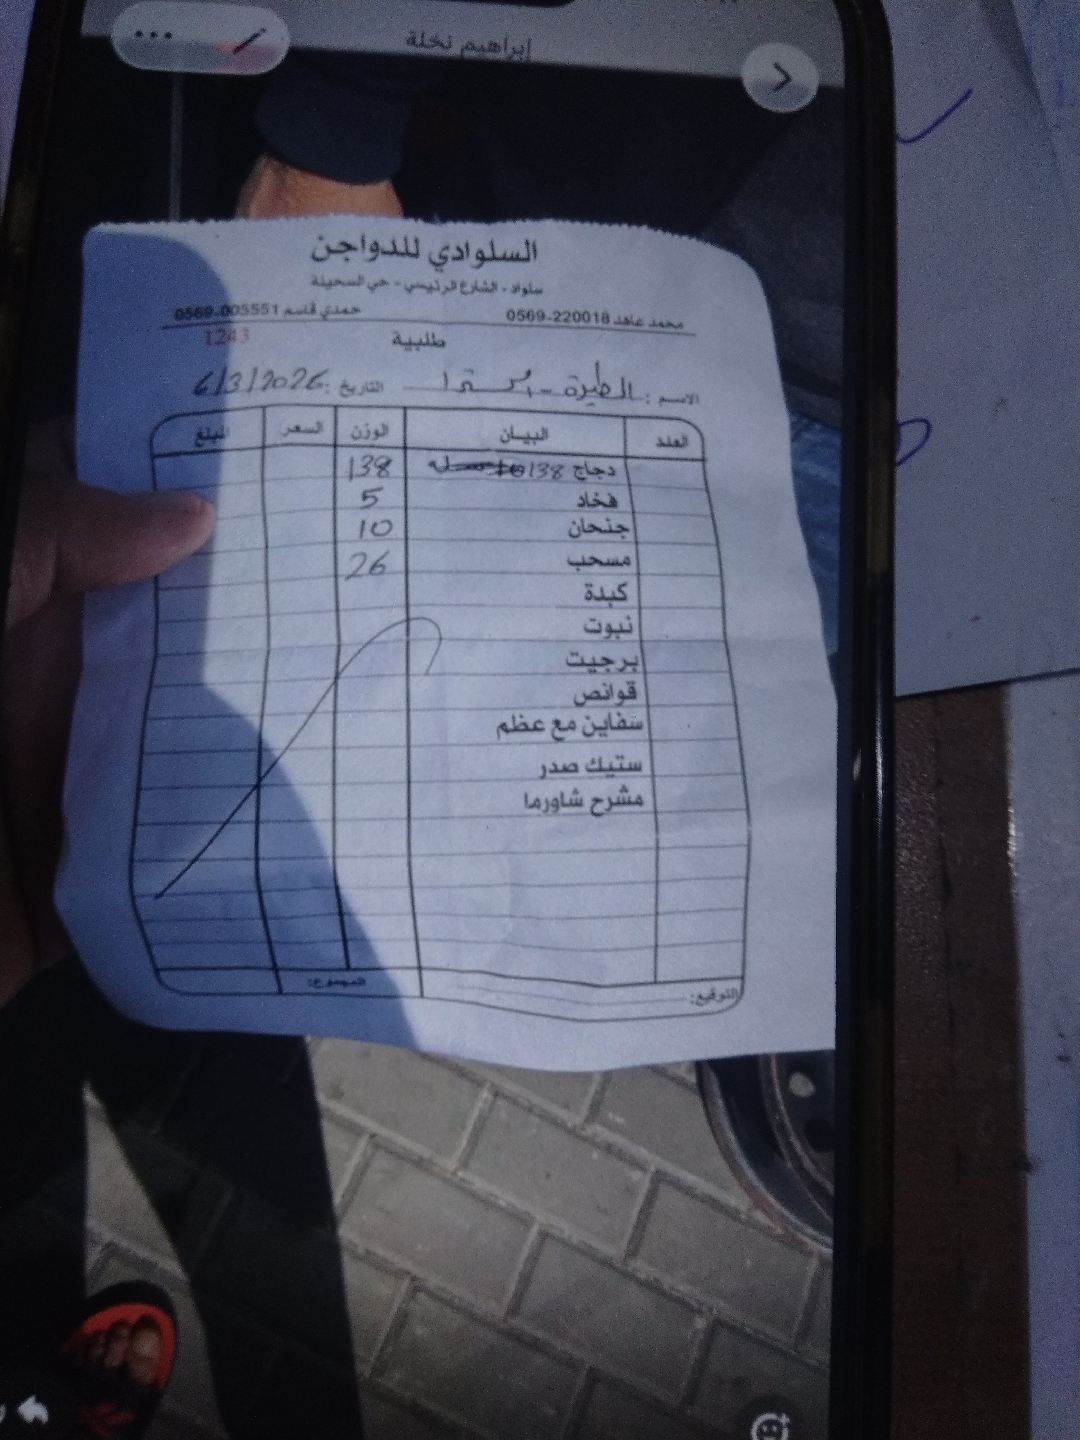 إبراهيم نخلة
السلوادي للدواجن
سلواد - الشارع الرئيسي - حي السحيلة
محمد عاهد 0569-220018 حمدي قاسم 0569-005551
طلبية 1243
الاسم: الطيرة - التاريخ: 6/3/2026
العدد البيان الوزن السعر المبلغ
دجاج 138 138
فخاد 5
جنحان 10
مسحب 26
كبدة
نبوت
برجيت
قوانص
سفاين مع عظم
ستيك صدر
مشرح شاورما
المجموع:
التوقيع: